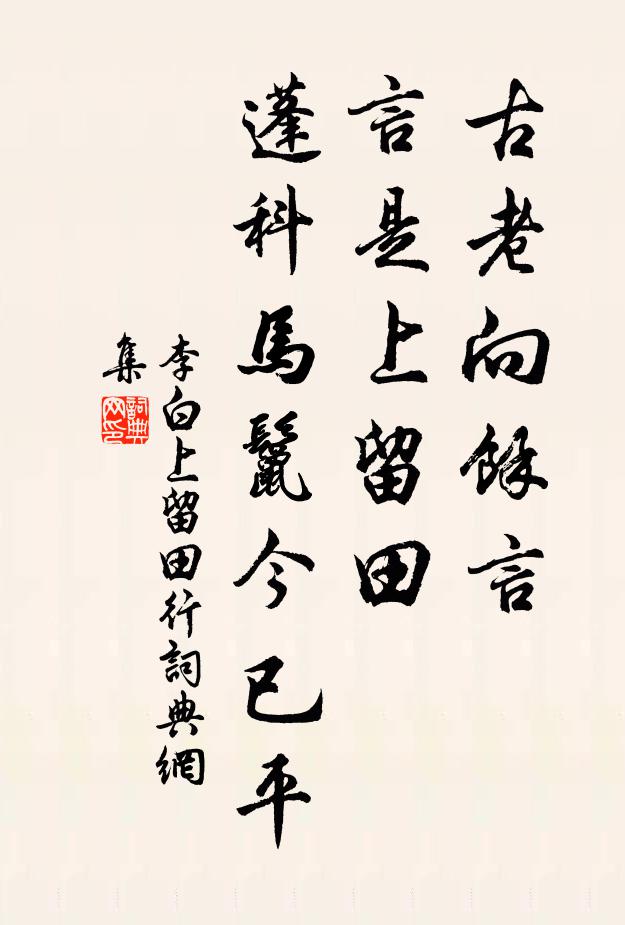 古老向餘言
言是上留田
蓬科馬鬣今已平
李白上留田行詞典網
集
詞典
网印